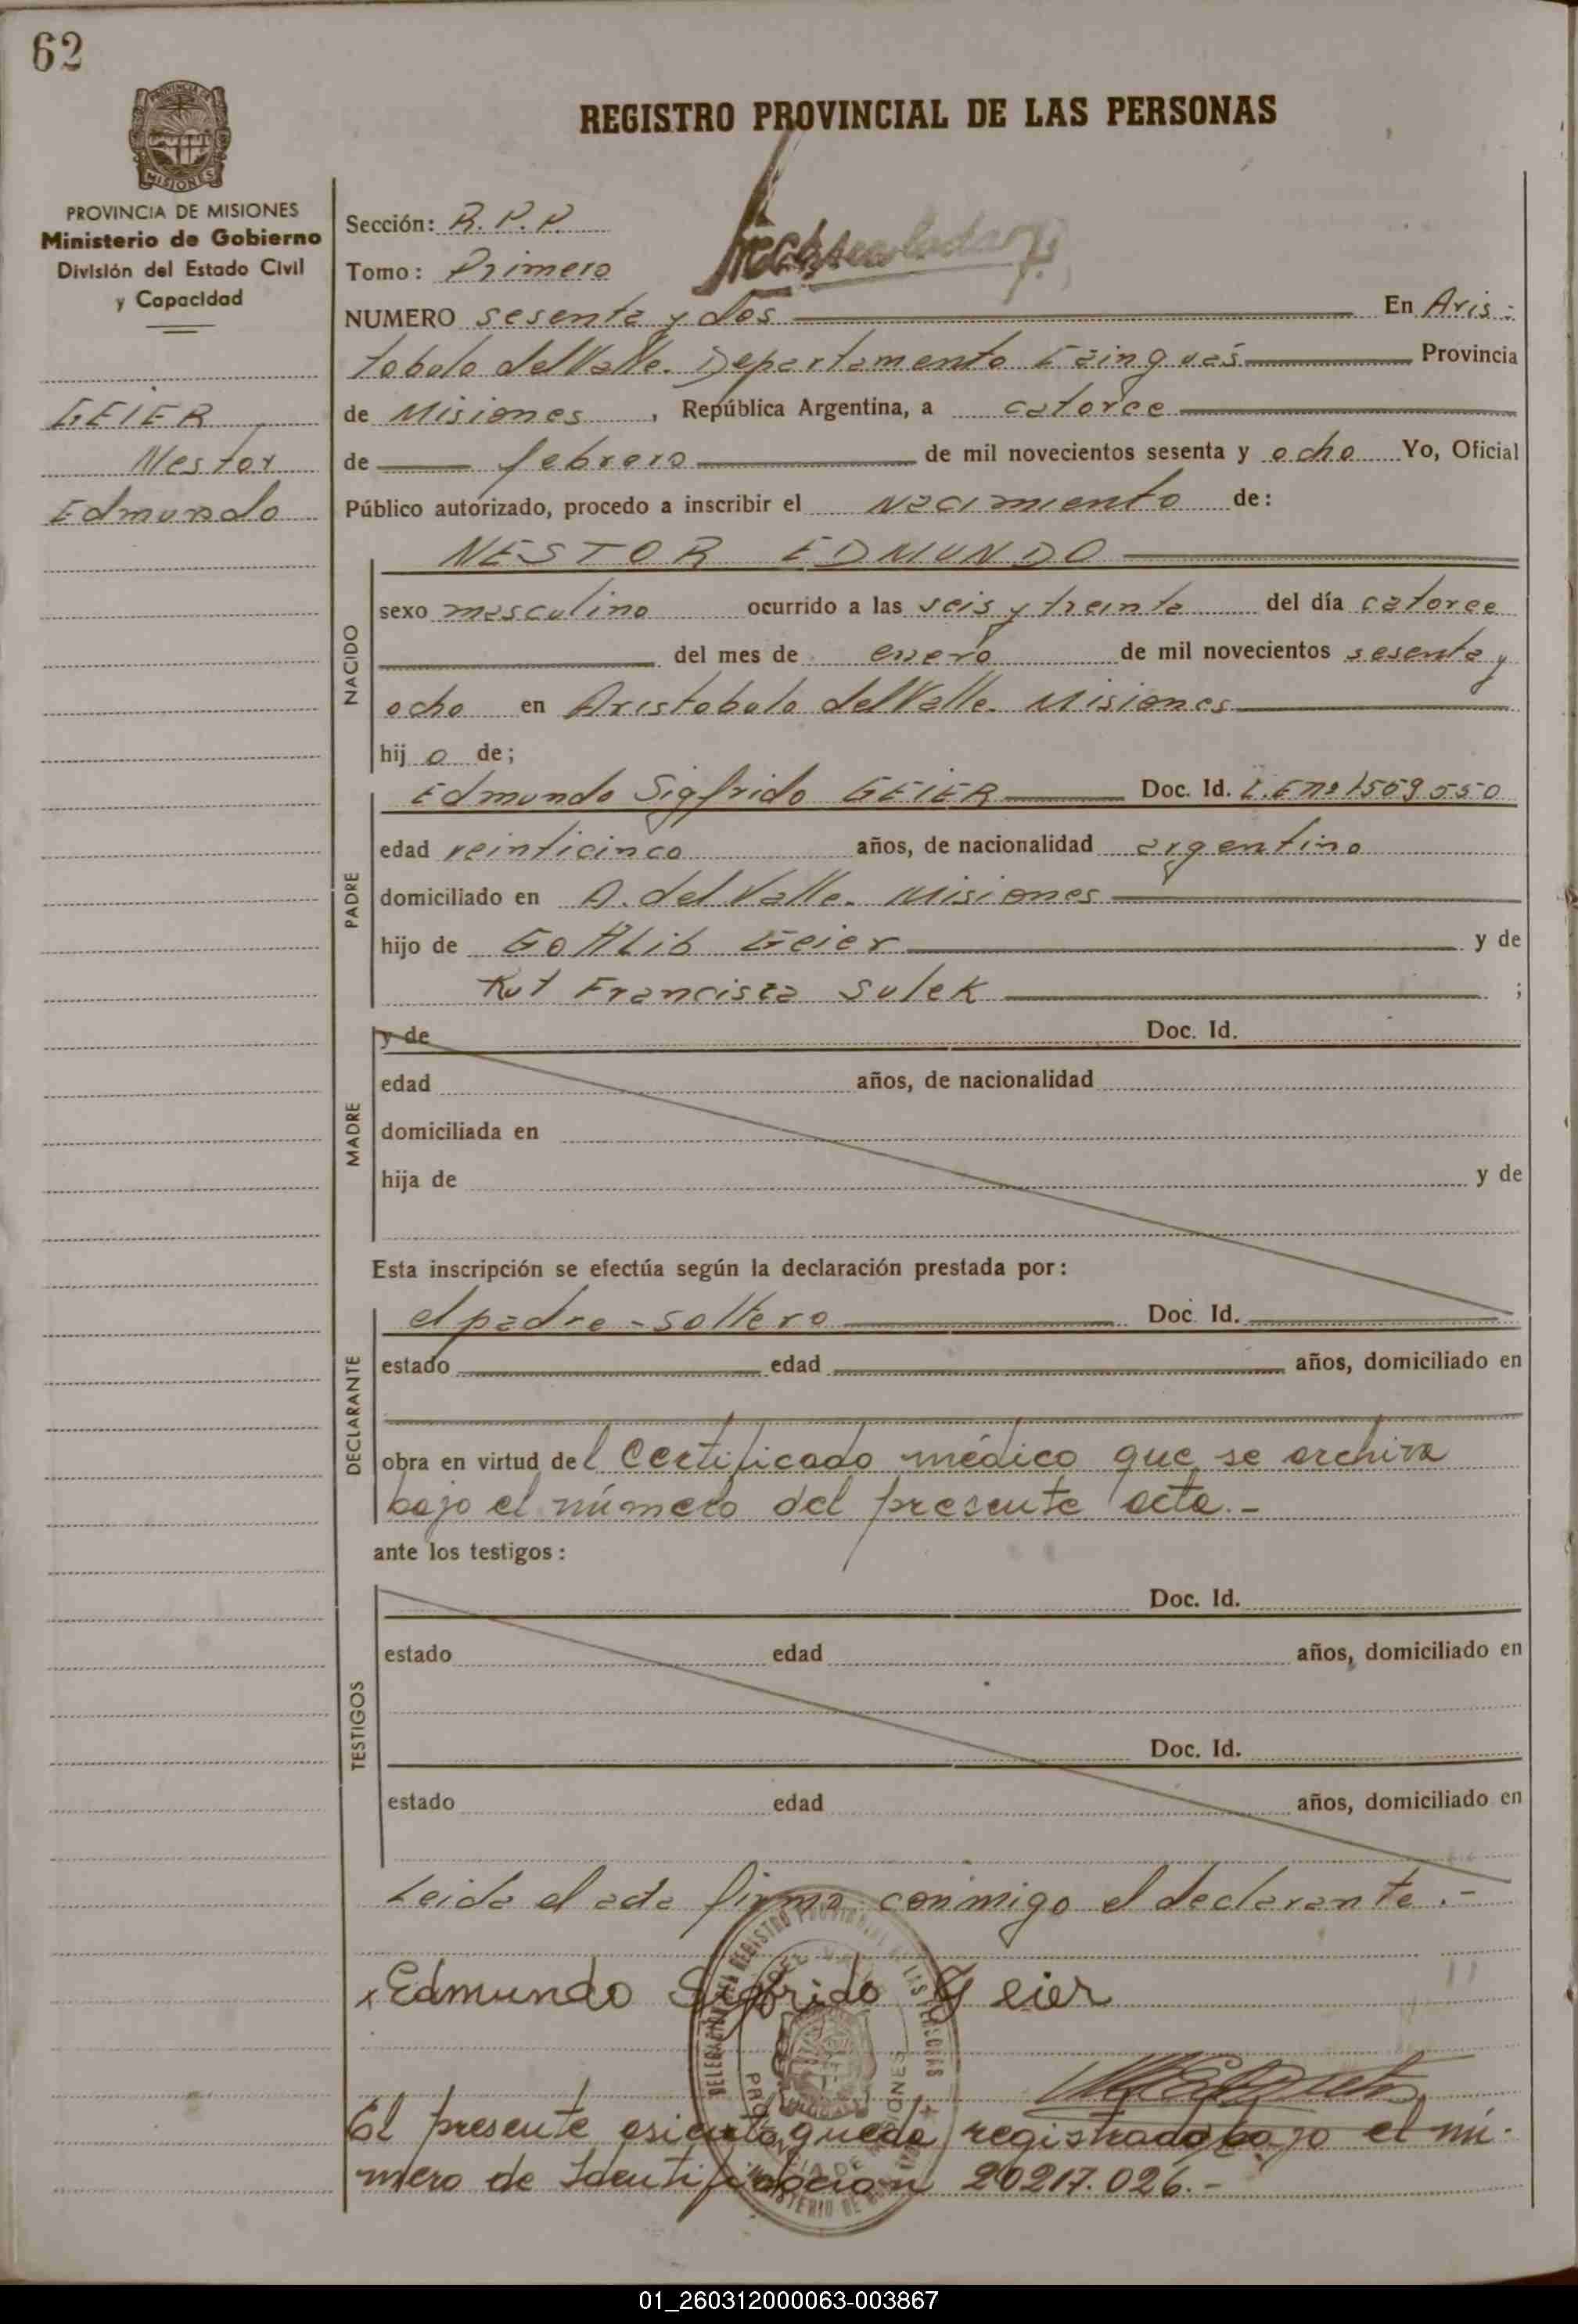 62
REGISTRO PROVINCIAL DE LAS PERSONAS
PROVINCIA DE MISIONES
Ministerio de Gobierno
División del Estado Civil
y Capacidad
GEIER
Nestor
Edmundo
Sección: R.P.P.
Tomo: Primero
NUMERO sesenta y dos En Aris-
tobulo del Valle. Departamento Cainguás Provincia
de Misiones, República Argentina, a catorce
de febrero de mil novecientos sesenta y ocho Yo, Oficial
Público autorizado, procedo a inscribir el Nacimiento de:
NACIDO
NESTOR EDMUNDO
sexo masculino ocurrido a las seis y treinta del día catorce
del mes de enero de mil novecientos sesenta y
ocho en Aristobulo del Valle. Misiones
hijo de;
PADRE
Edmundo Sigfrido GEIER Doc. Id. L.E nº 1509550
edad veinticinco años, de nacionalidad argentino
domiciliado en A. del Valle. Misiones
hijo de Gottlib Geier y de
Rut Francisca Sulek ;
MADRE
y de Doc. Id.
edad años, de nacionalidad
domiciliada en
hija de y de
Esta inscripción se efectúa según la declaración prestada por:
DECLARANTE
el padre - soltero Doc. Id.
estado edad años, domiciliado en
obra en virtud del Certificado médico que se archiva
bajo el número del presente acta.-
ante los testigos:
TESTIGOS
Doc. Id.
estado edad años, domiciliado en
Doc. Id.
estado edad años, domiciliado en
Leida el acta firma conmigo el declarante.-
x Edmundo Sigfrido Geier
El presente asiento queda registrado bajo el nú-
mero de Identificacion 20217.026.-
01_260312000063-003867